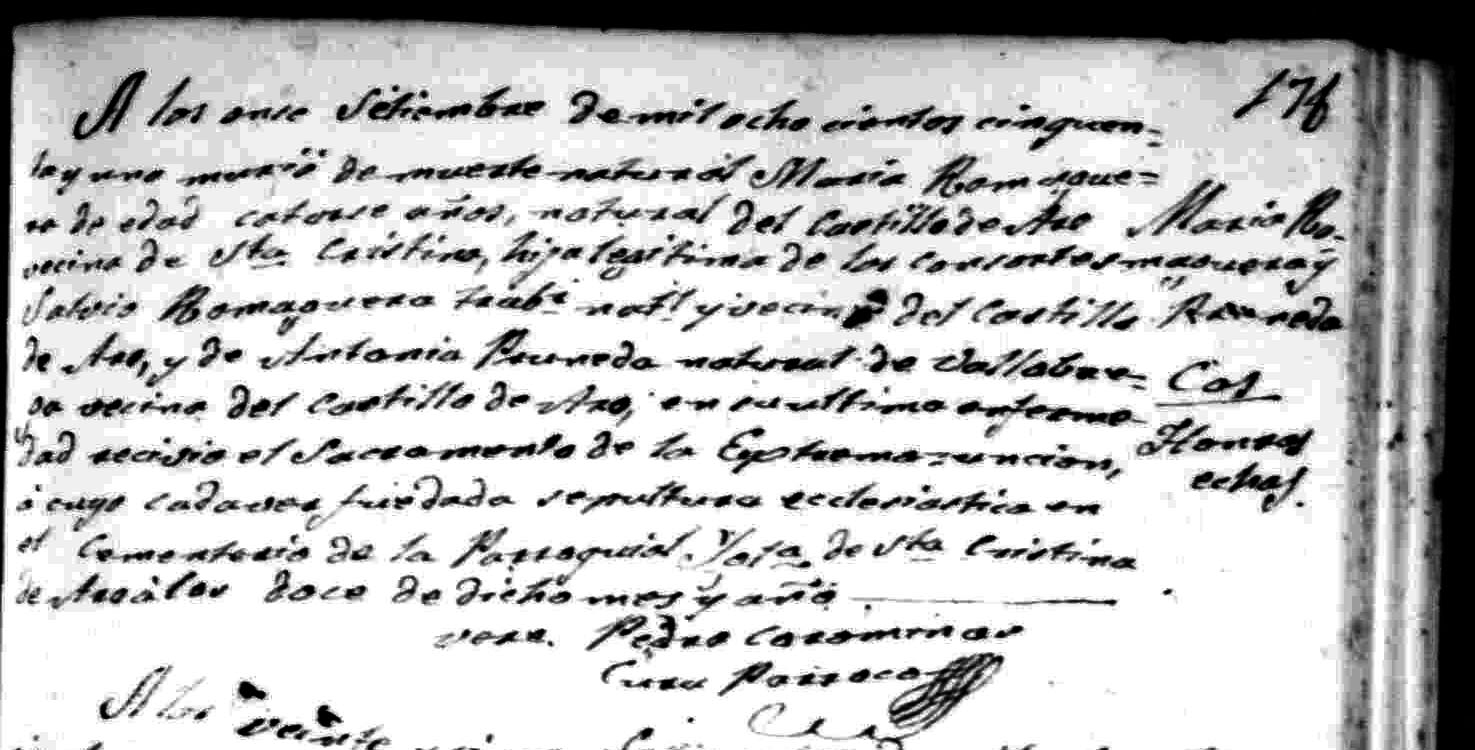 A los onse Setiembre de mil ocho cientos cinquen=
ta y uno murió de muerte natural Maria Romague=
ra de edad catorse años, natural del Castillo de Aro
vecina de Sta. Cristina, hija legitima de los consortes
Salvio Romaguera trabr. natl. y vecino del Castillo
de Aro, y de Antonia Pruneda natural de Vallobre=
ga vecina del Castillo de Aro; en su ultima enferme-
dad recivio el Sacramento de la Extrema-uncion,
á cuyo cadaver fue dada sepultura ecclesiastica en
el Cementerio de la Parroquial Ygla. de Sta Cristina
de Aro á los doce de dicho mes y año.
vere. Pedro Carominas
Cura Parroco
174
Maria Ro-
maguera y
Pruneda
Cos
Honras
echas.
A los veinte